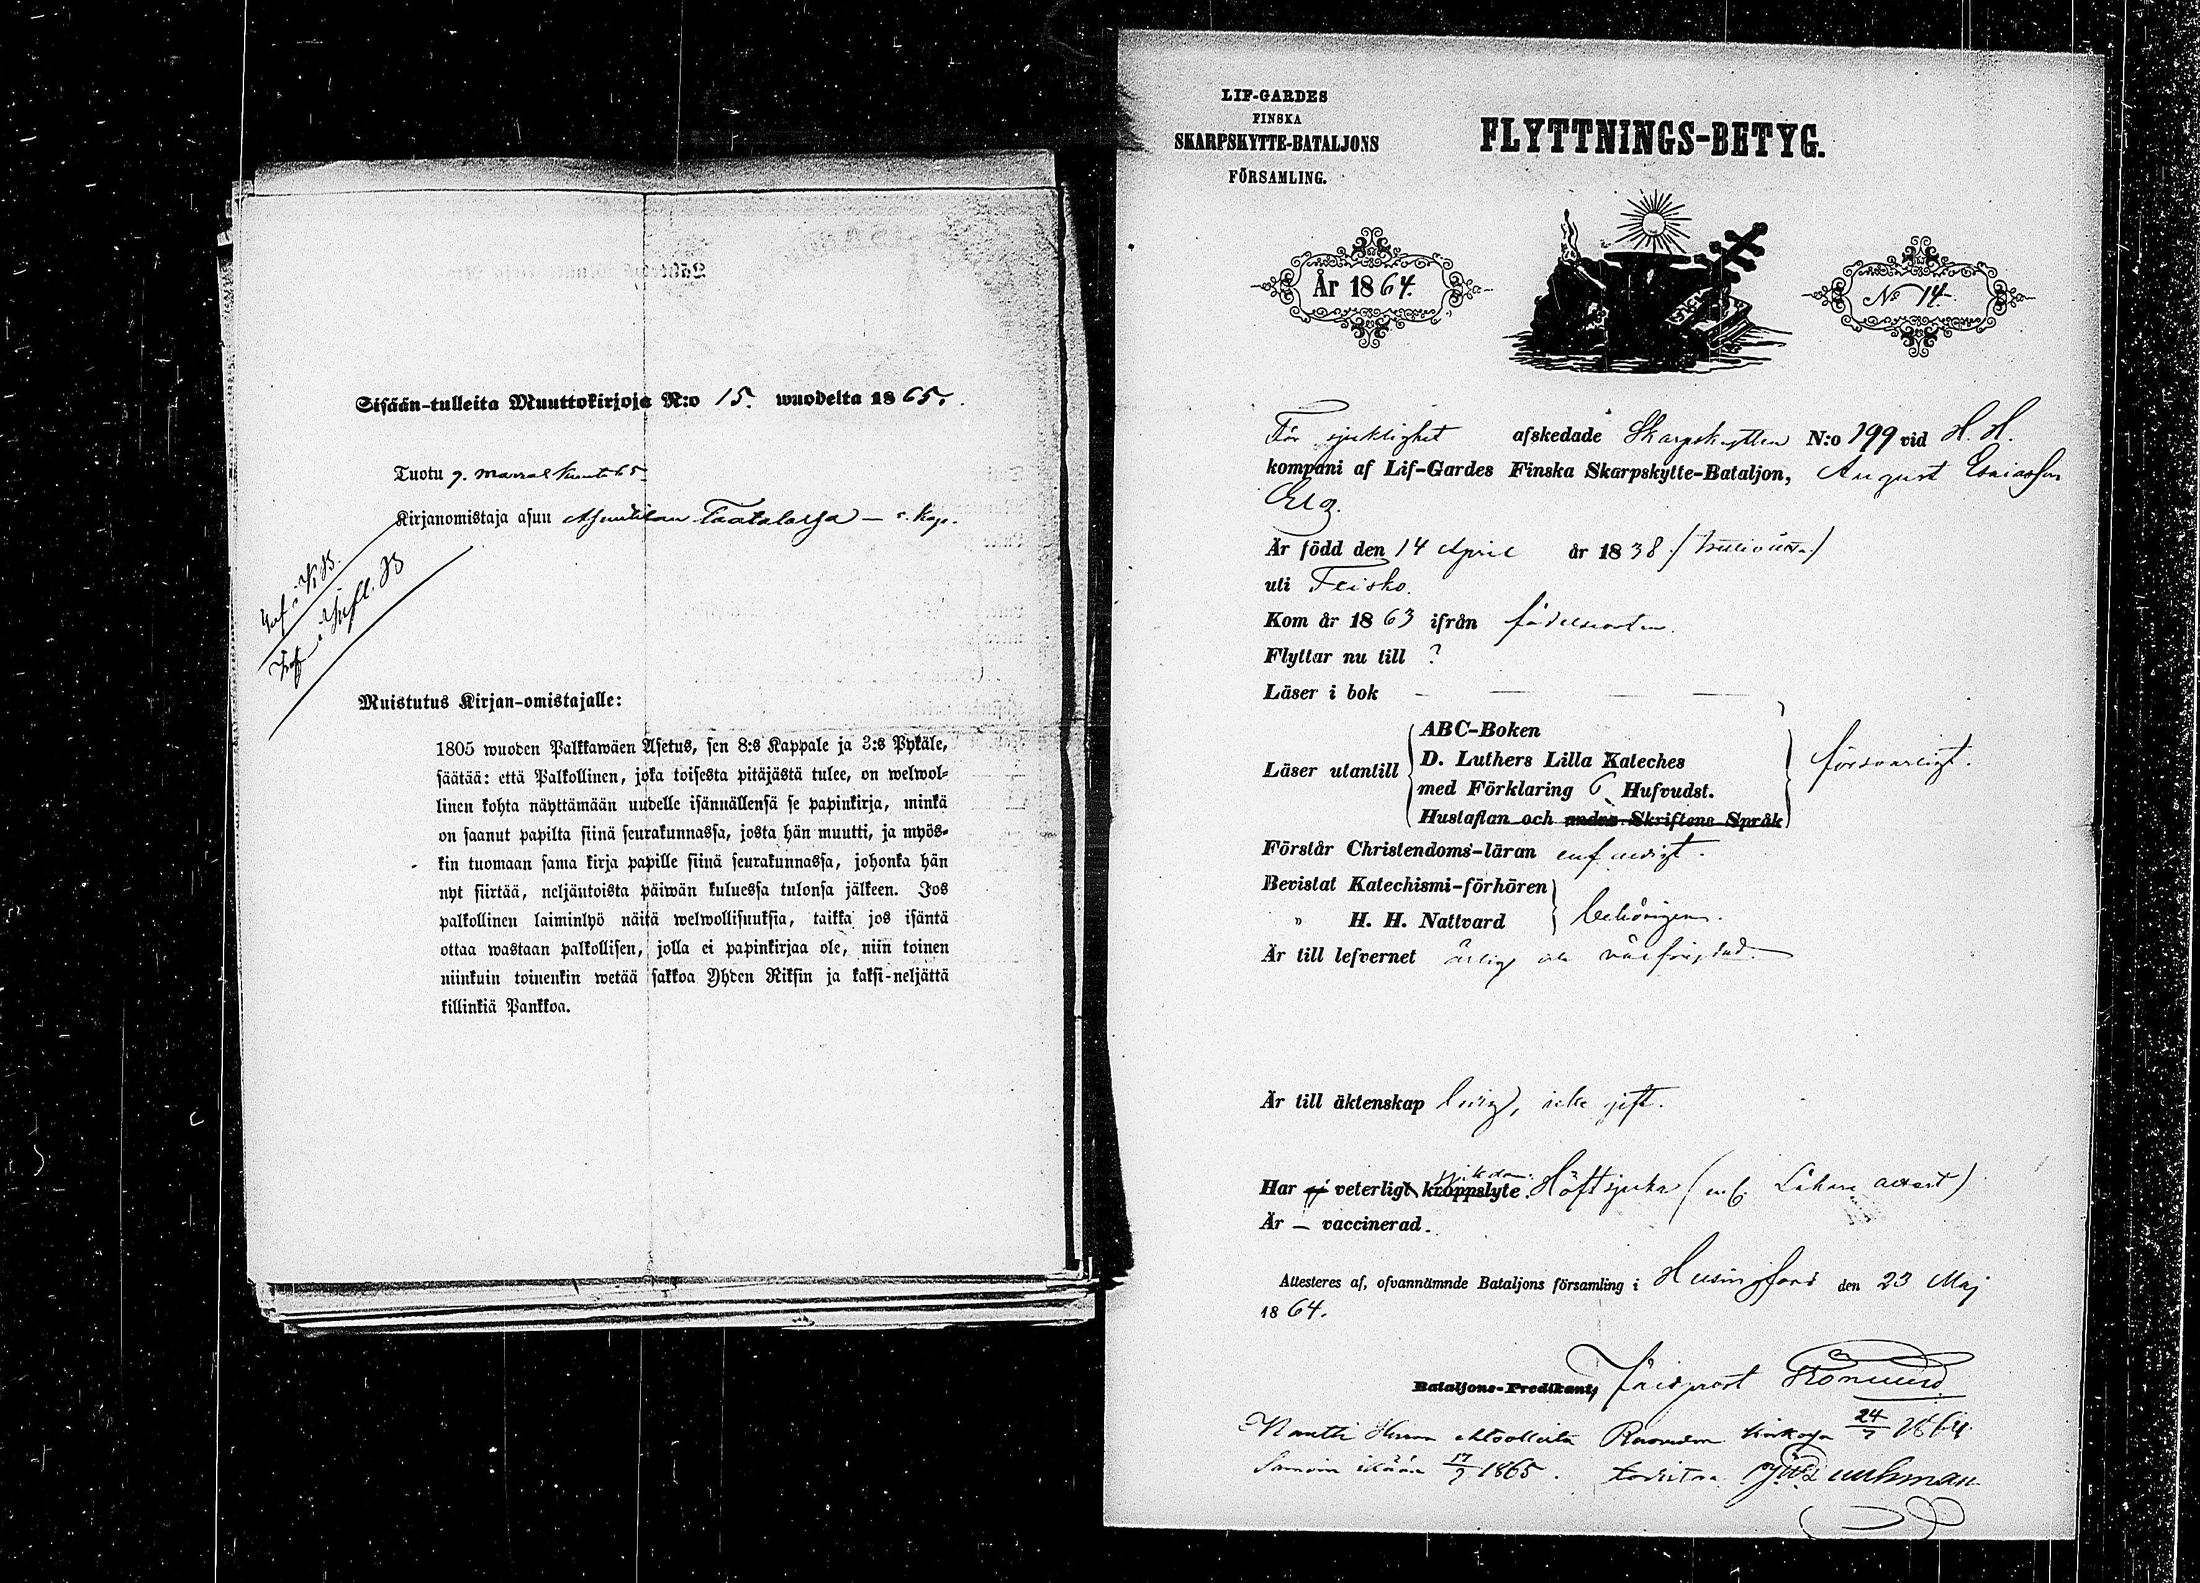 Sisään-tulleita Muuttokirjoja N:o 15. wuodelta 1865.
Tuotu 9. marraskuuta 65
Kirjanomistaja asuu Taatalassa
Inf. i KB.
Inf. i Infl. B
Muistutus Kirjan-omistajalle:
1805 wuoden Palkkawäen Asetus, sen 8:s Kappale ja 3:s Pykäle,
säätää: että Palkollinen, joka toisesta pitäjästä tulee, on welwol-
linen kohta näyttämään uudelle isännällensä se papinkirja, minkä
on saanut papilta siinä seurakunnassa, josta hän muutti, ja myös-
kin tuomaan sama kirja papille siinä seurakunnassa, johonka hän
nyt siirtää, neljäntoista päiwän kuluessa tulonsa jälkeen. Jos
palkollinen laiminlyö näitä welwollisuuksia, taikka jos isäntä
ottaa wastaan palkollisen, jolla ei papinkirjaa ole, niin toinen
niinkuin toinenkin wetää sakkoa Yhden Riksin ja kaksi-neljättä
killinkiä Pankkoa.
LIF-GARDES
FINSKA
SKARPSKYTTE-BATALJONS
FÖRSAMLING.
FLYTTNINGS-BETYG.
År 1864.
No 14.
För sjuklighet afskedade Skarpskytten N:o 199 vid H. H.
kompani af Lif-Gardes Finska Skarpskytte-Bataljon, August Esaiasson
Elg.
Är född den 14 April år 1838
uti Teisko.
Kom år 1863 ifrån födelseorten.
Flyttar nu till ?
Läser i bok — — — —
Läser utantill
ABC-Boken
D. Luthers Lilla Kateches
med Förklaring 6 Hufvudst.
Hustaflan och andra Skriftens Språk
försvarligt.
Förstår Christendoms-läran enfaldigt.
Bevistat Katechismi-förhören
" H. H. Nattvard
behörigen.
Är till lefvernet ärlig och välfrejdad.
Är till äktenskap ledig, icke gift.
Har ej veterligt kroppslyte sjukdom: Höftsjuka (enl. Läkare attest)
Är — vaccinerad.
Attesteres af, ofvannämnde Bataljons församling i Helsingfors den 23 Maj
1864.
Bataljons-Predikant,
Nautti Herran ehtoollista kirkossa 24/7 1864.
Samoin 17/9 1865. todistaa